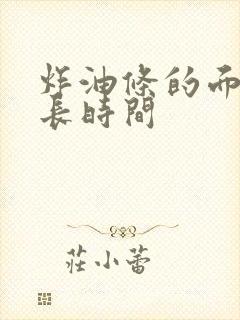 炸油條的而
長時間
莊小蕾